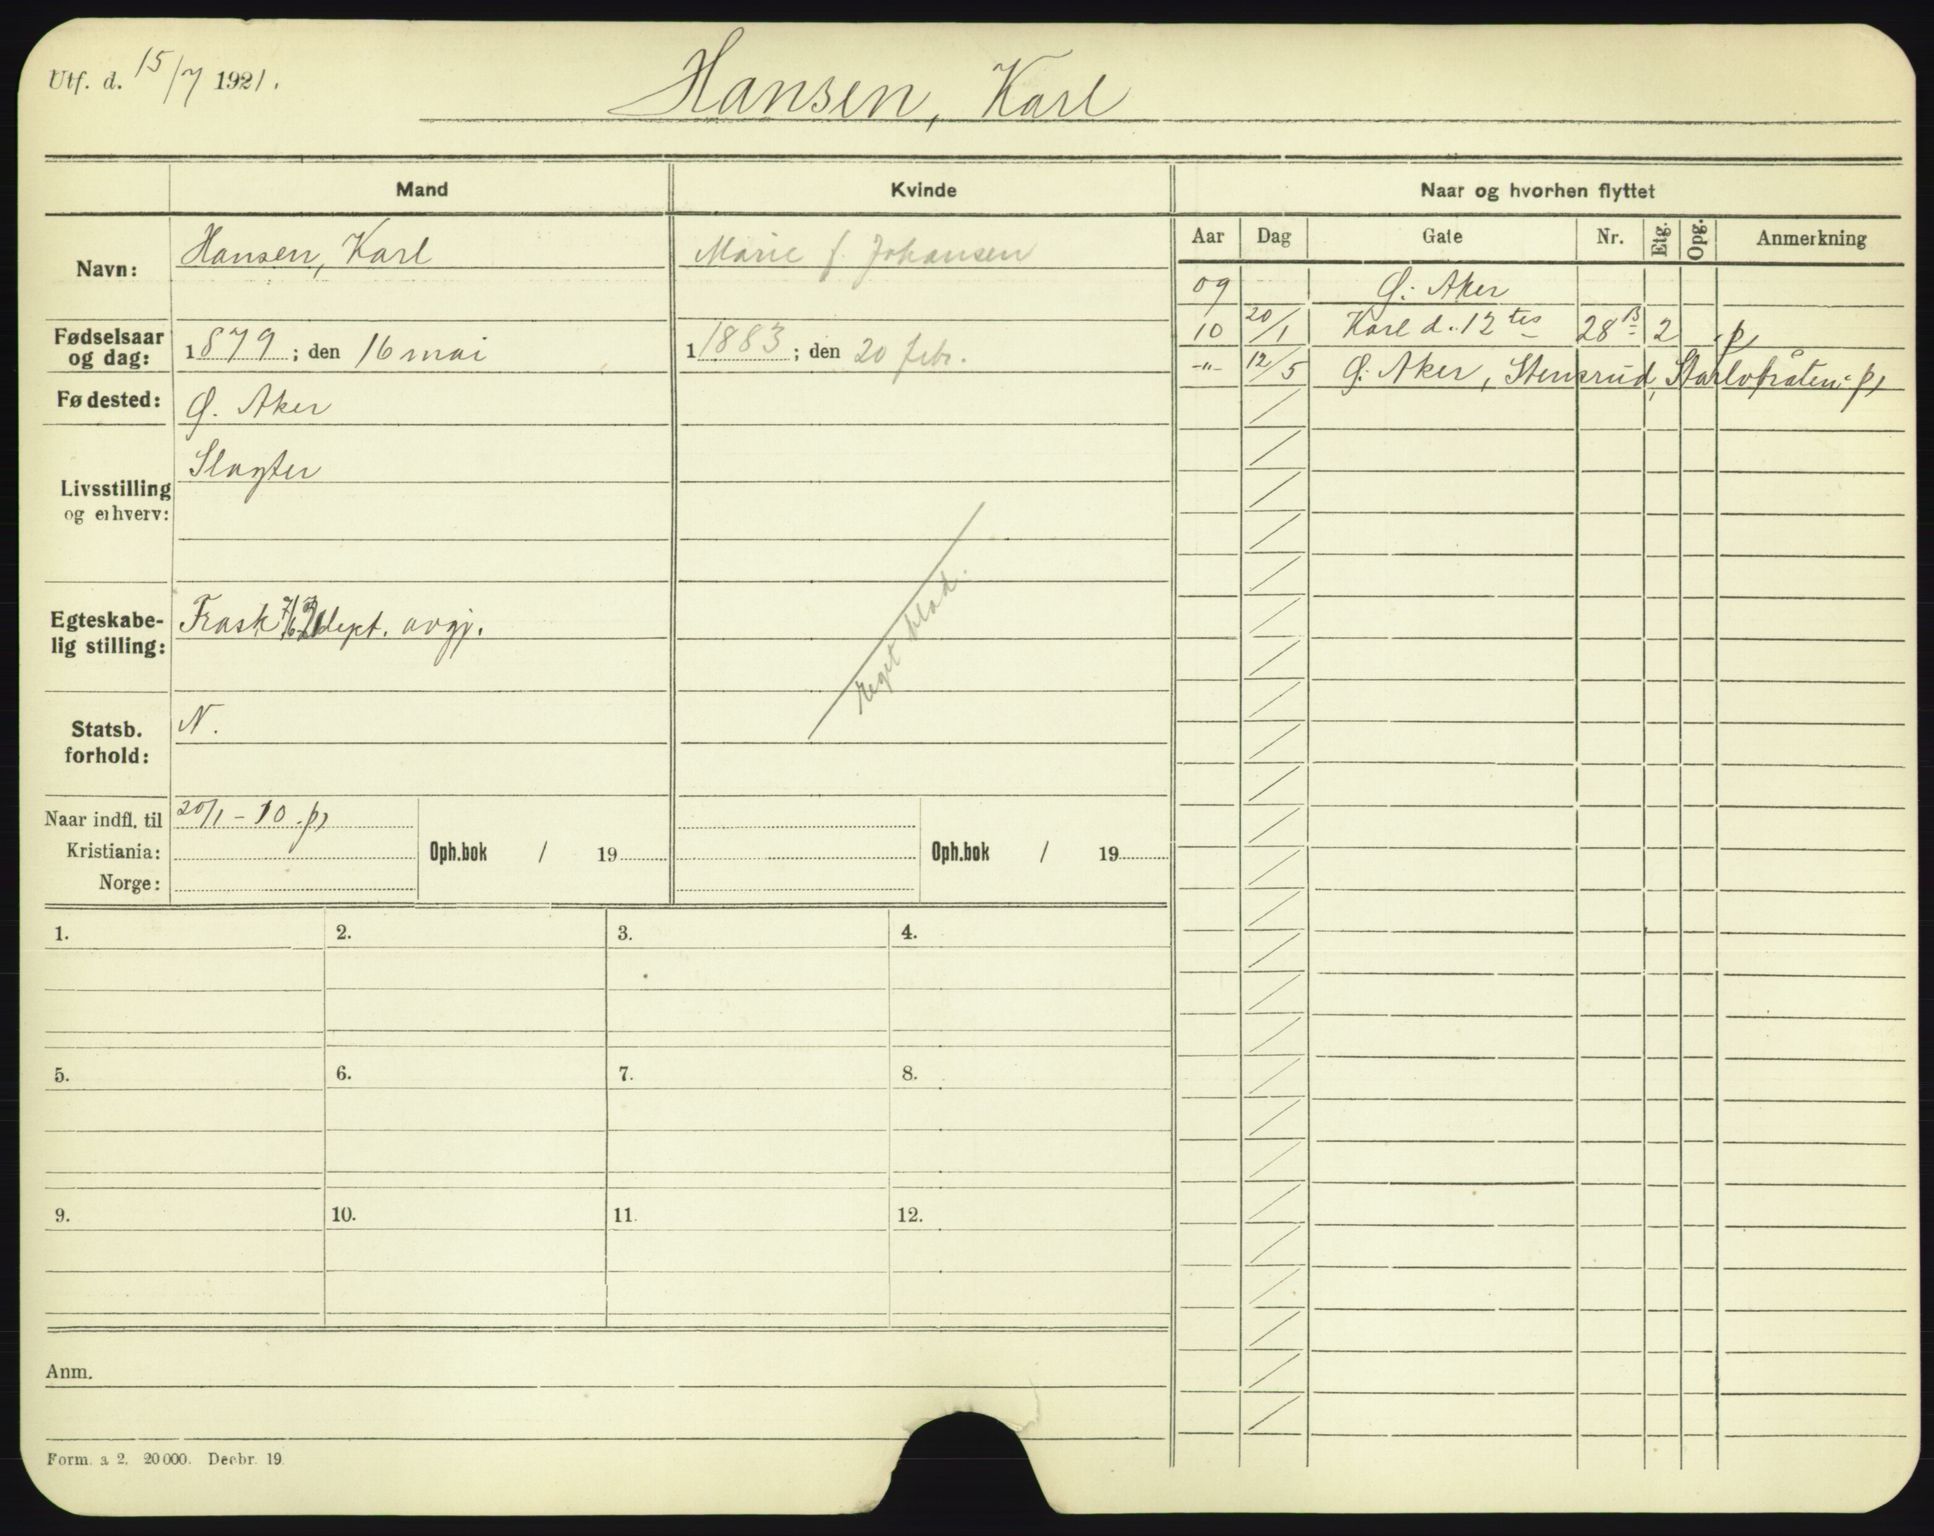 Utf. d. 15/7 1921.
Hansen, Karl
Mand Kvinde Naar og hvorhen flyttet
Aar Dag Gate Nr. Etg. Opg. Anmerkning
Navn: Hansen, Karl Marie f. Johansen
09 Ø. Aker
10 20/1 Karl d. 12tes 28B 2 p)
-"- 12/5 Ø. Aker, Stensrud, p)
Fødselsaar
og dag: 1879; den 16 mai 1883; den 20 febr.
Fødested: Ø. Aker
Livsstilling Slagter
og erhverv:
Egteskabe-
lig stilling: Frask 7/6 21 dept. avgj.
eget blad.
Statsb.
forhold: N.
Naar indfl. til 20/1 - 10 p)
Kristiania: Oph.bok / 19 Oph.bok / 19
Norge:
1. 2. 3. 4.
5. 6. 7. 8.
9. 10. 11. 12.
Anm.
Form. a 2. 20 000. Decbr. 19.